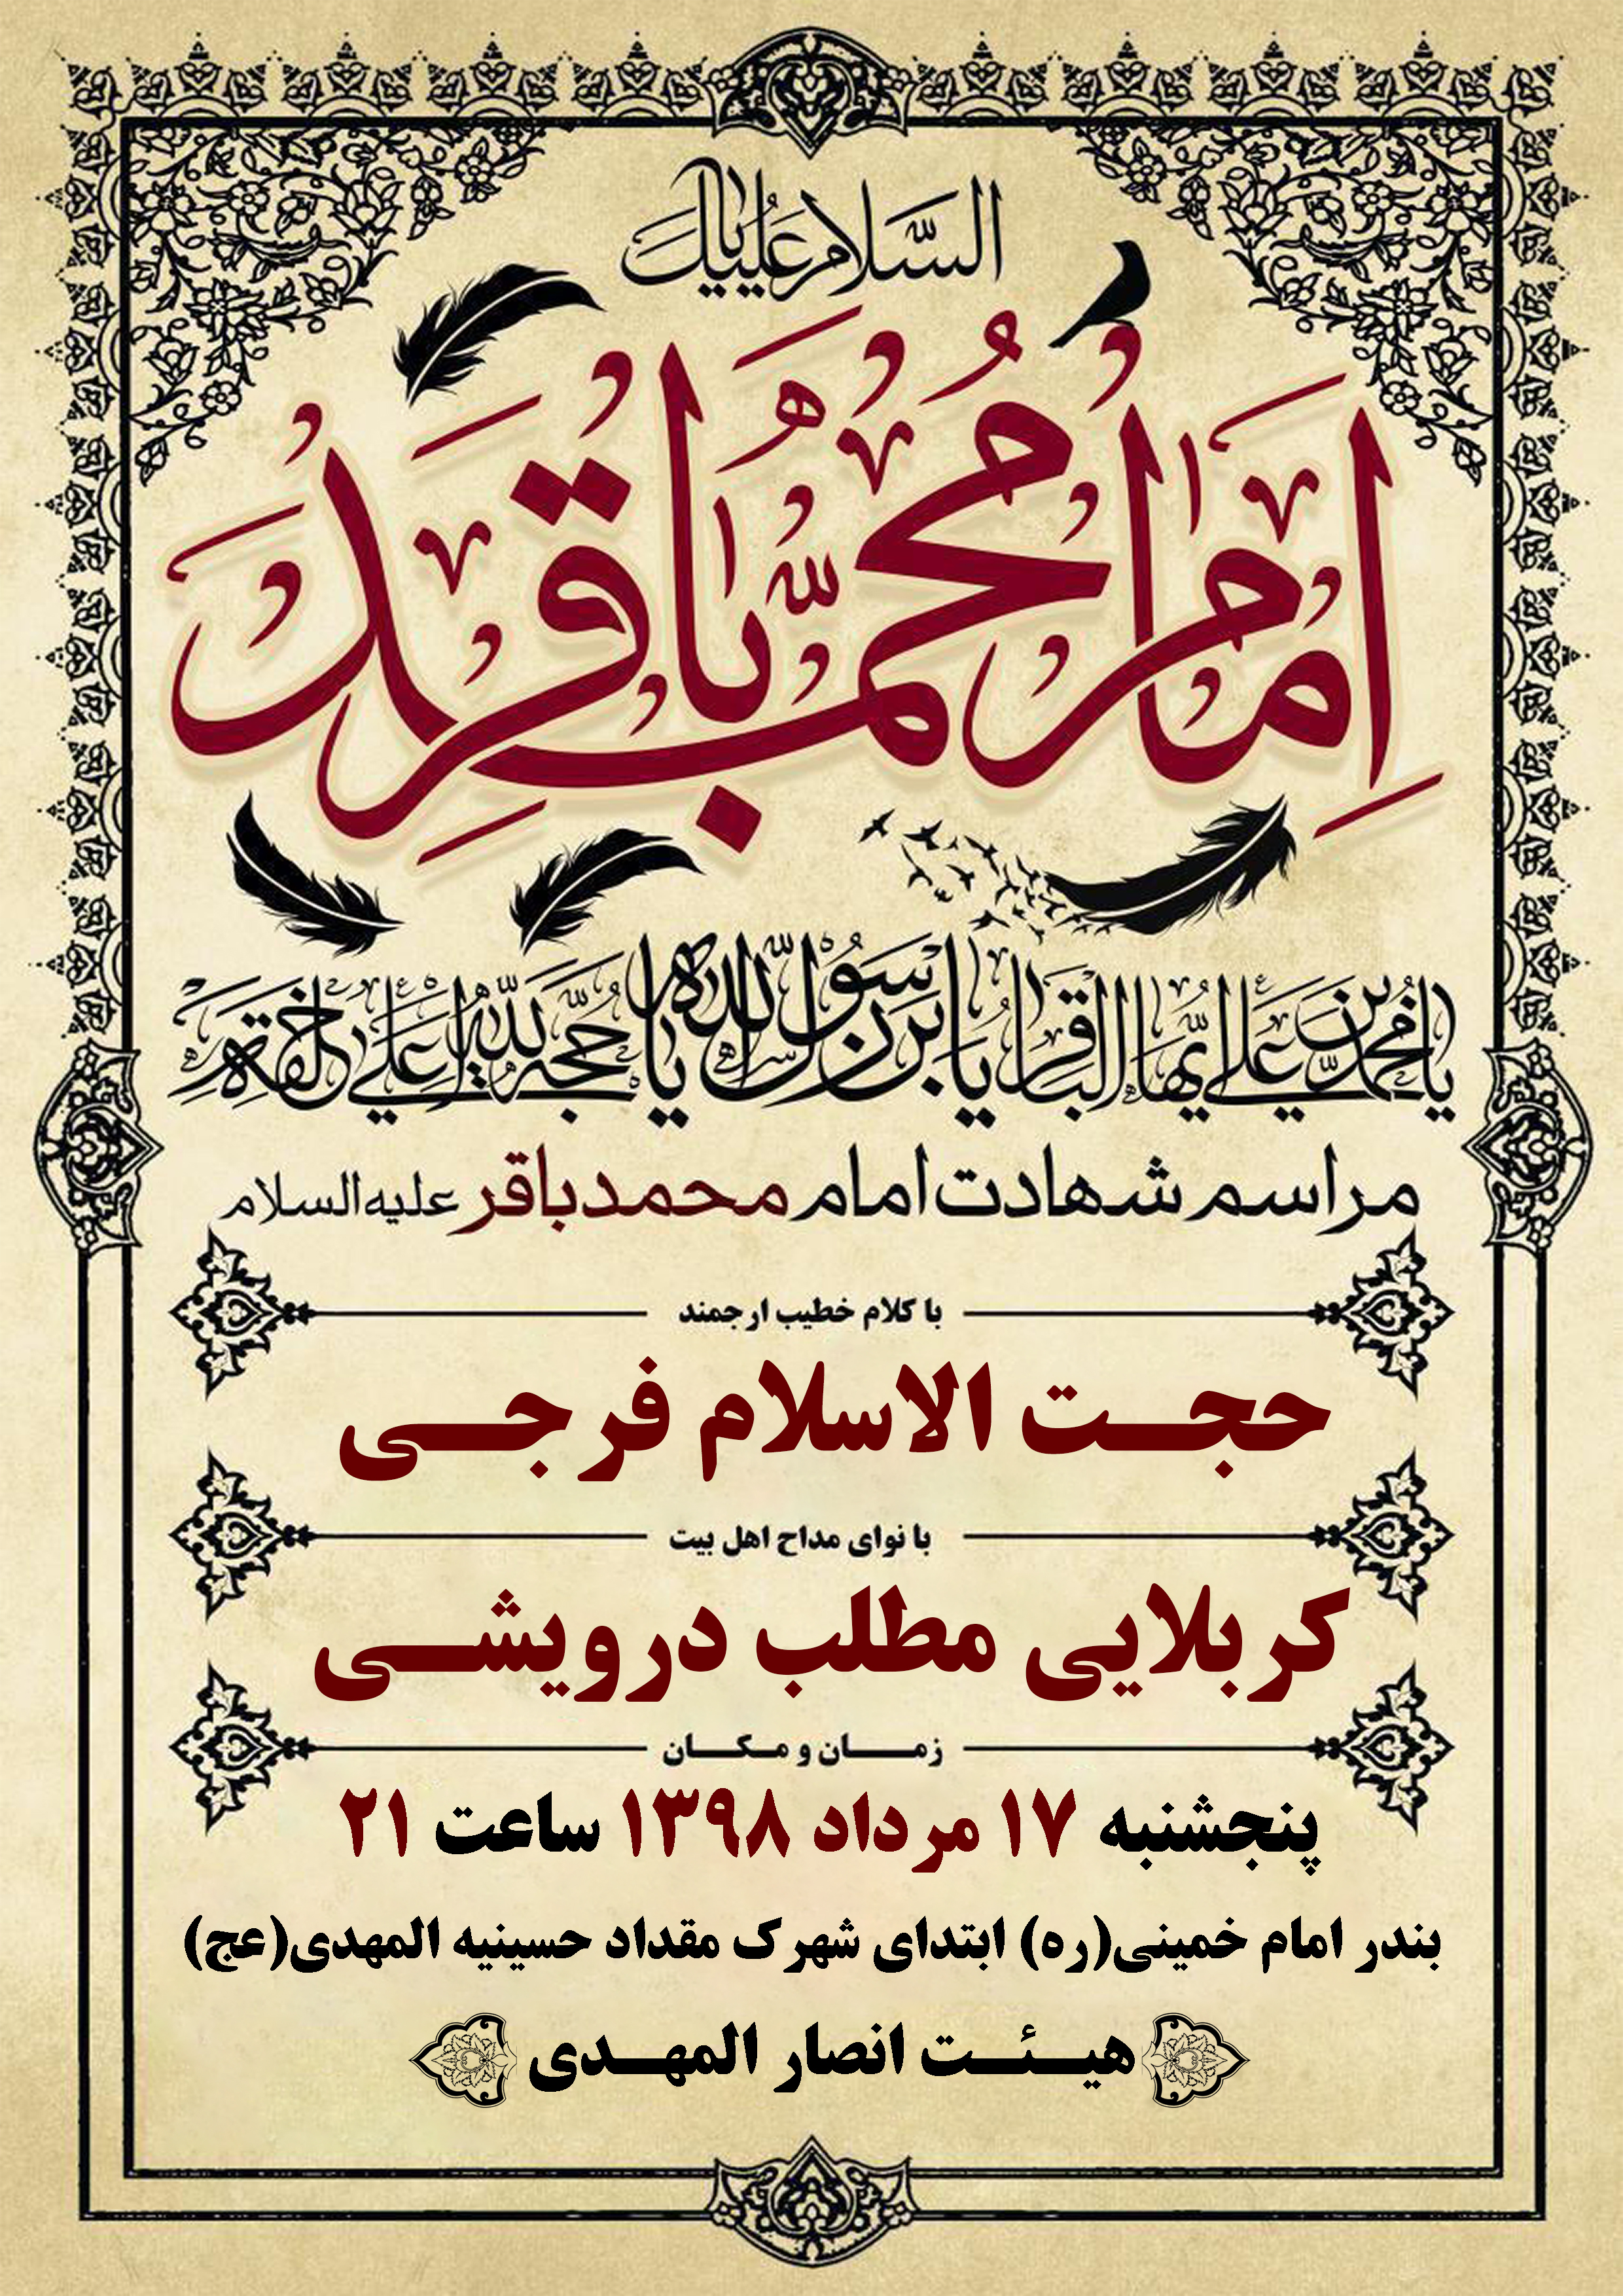 السلام علیک یا
امام محمد باقر
یا محمد بن علی ایها الباقر یابن رسول الله یا حجة الله علی خلقه
مراسم شهادت امام محمدباقر علیه‌السلام
با کلام خطیب ارجمند
حجت الاسلام فرجی
با نوای مداح اهل بیت
کربلایی مطلب درویشی
زمان و مکان
پنجشنبه ۱۷ مرداد ۱۳۹۸ ساعت ۲۱
بندر امام خمینی(ره) ابتدای شهرک مقداد حسینیه المهدی(عج)
هیئت انصار المهدی